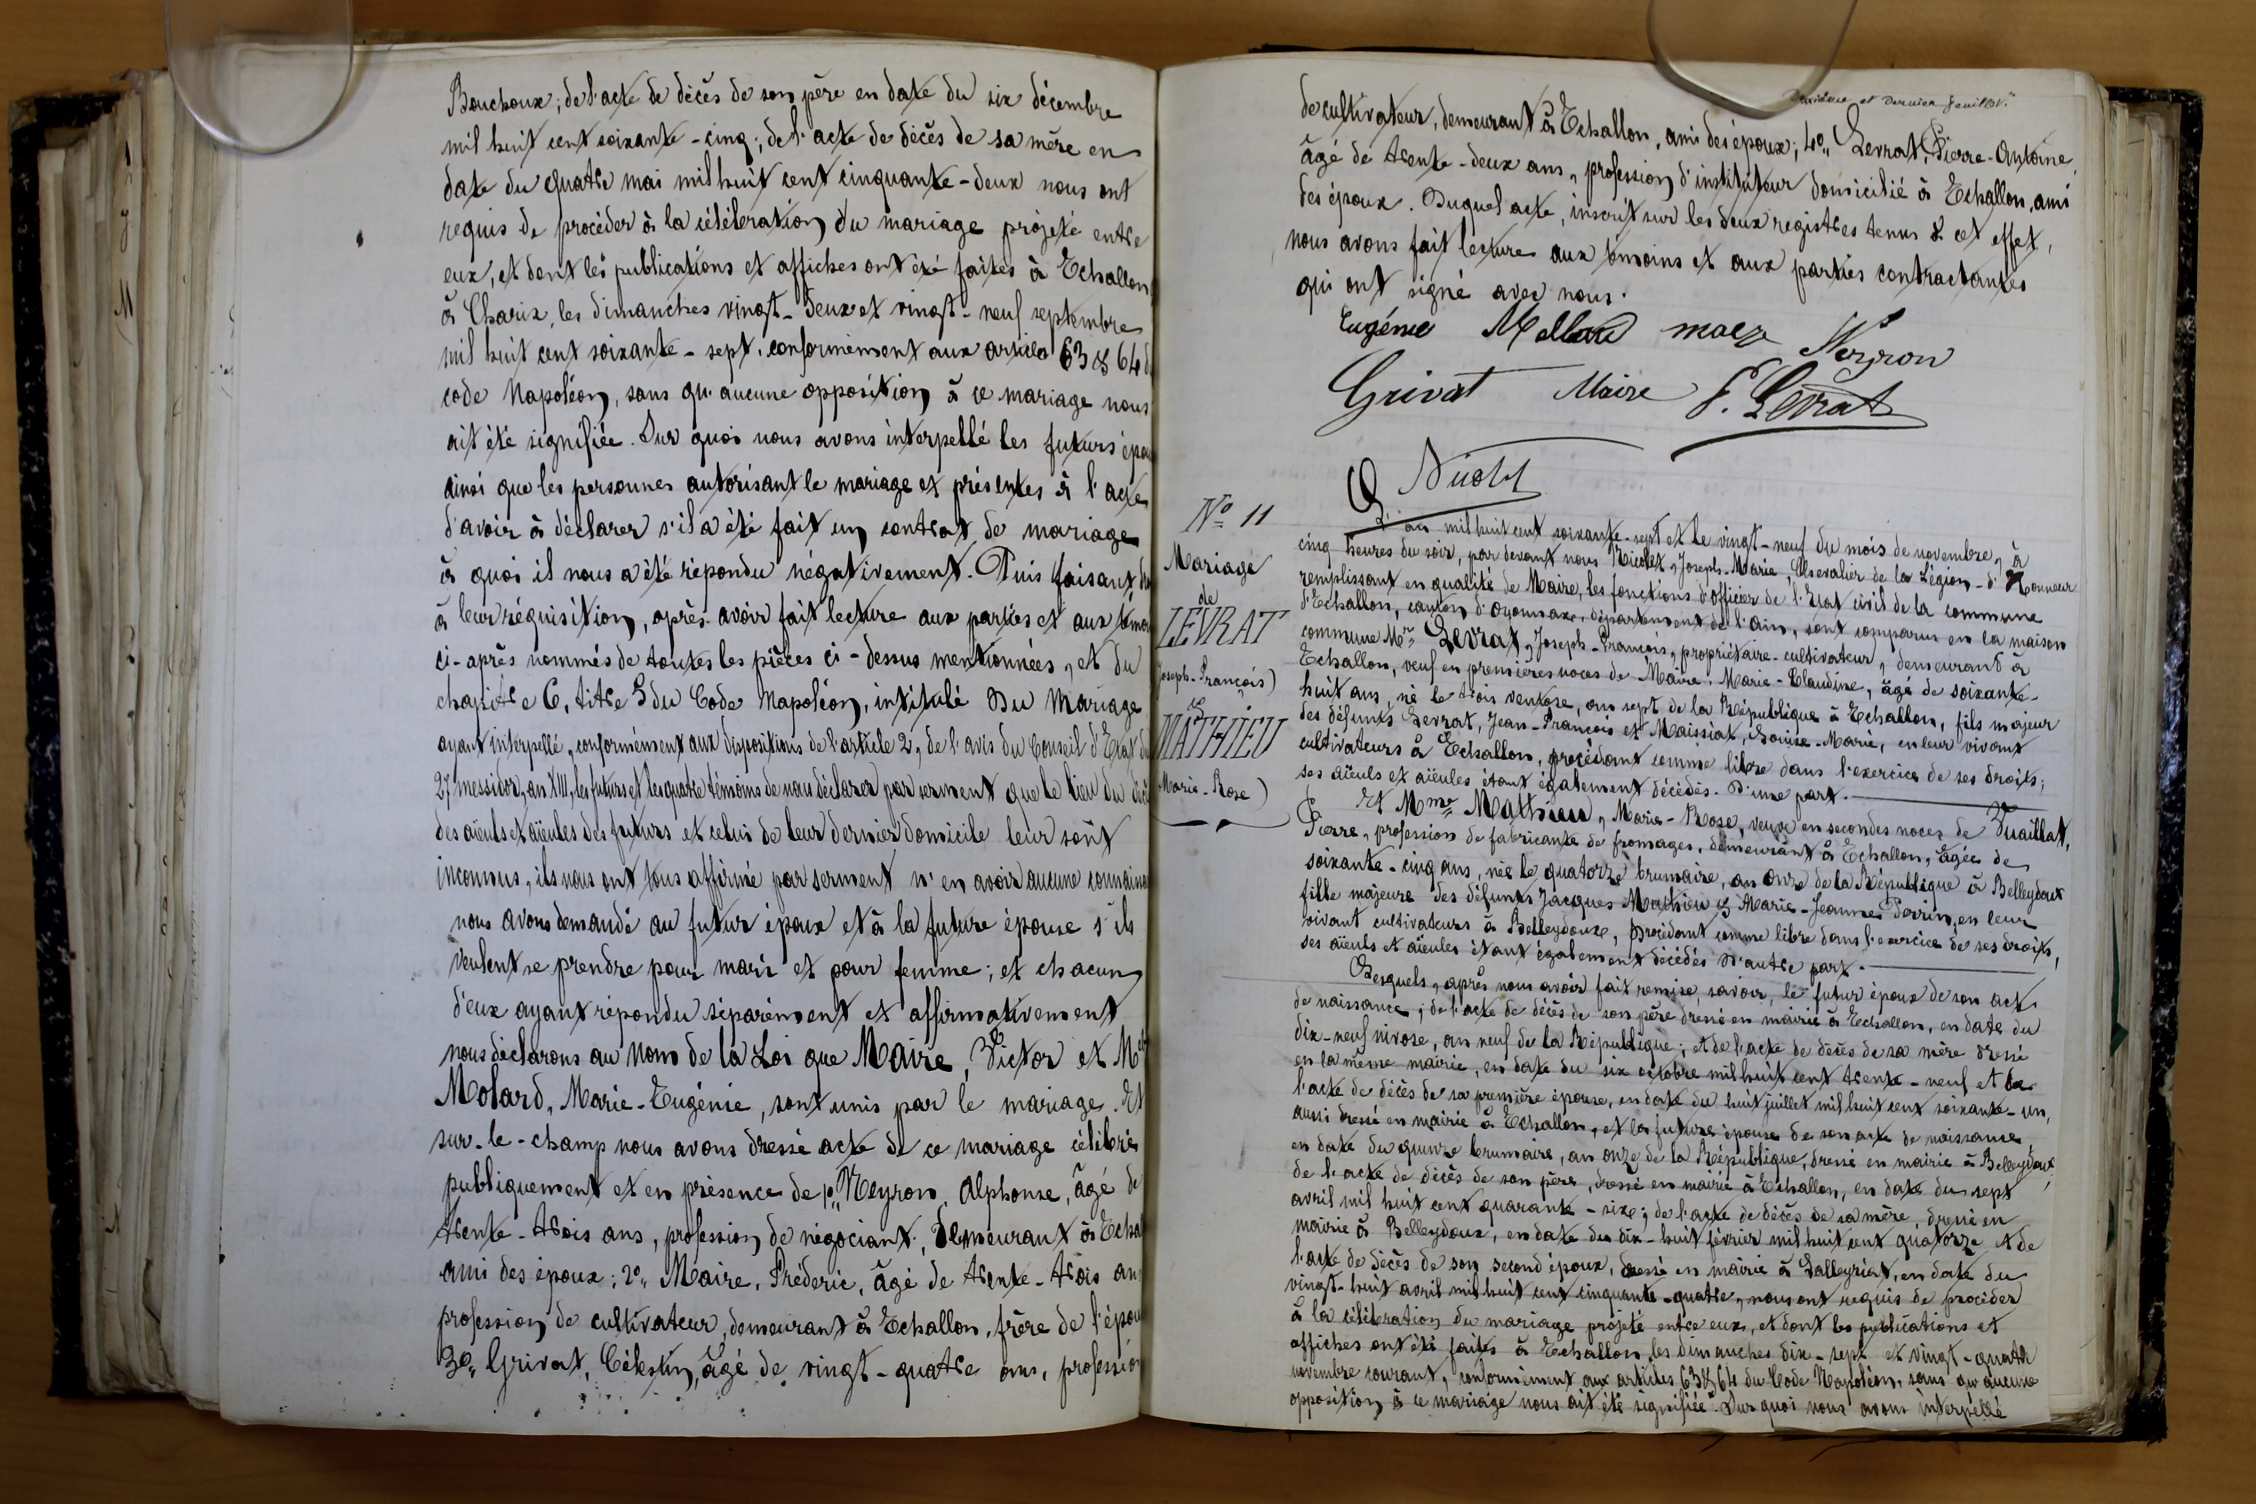 Bouchoux; de l'acte de décès de son père en date du six décembre
mil huit cent soixante-cinq; de l'acte de décès de sa mère en
date du quatre mai mil huit cent cinquante-deux nous ont
requis de procéder à la célébration du mariage projeté entre
eux, et dont les publications et affiches ont été faites à Echallon
à Charix, les dimanches vingt-deux et vingt-neuf septembre
mil huit cent soixante-sept, conformément aux articles 63 & 64 du
code Napoléon, sans qu'aucune opposition à ce mariage nous
ait été signifiée. Sur quoi nous avons interpellé les futurs épou
ainsi que les personnes autorisant le mariage et présentes à l'acte
d'avoir à déclarer s'il a été fait un contrat de mariage
à quoi il nous a été répondu négativement. Puis faisant
à leur réquisition, après avoir fait lecture aux parties et aux témo
ci-après nommés de toutes les pièces ci-dessus mentionnées, et du
chapitre 6, titre 5 du Code Napoléon, intitulé Du Mariage
ayant interpellé, conformément aux dispositions de l'article 2, de l'avis du Conseil d'Etat du
27 messidor, an XIII, les futurs et les quatre témoins de nous déclarer par serment que le lieu du décè
des aïeuls et aïeules des futurs et celui de leur dernier domicile leur sont
inconnus, ils nous ont tous affirmé par serment n'en avoir aucune connaissan
nous avons demandé au futur époux et à la future épouse s'ils
veulent se prendre pour mari et pour femme; et chacun
d'eux ayant répondu séparément et affirmativement
nous déclarons au Nom de la Loi que Maire, Victor et Melle
Molard, Marie-Eugénie, sont unis par le mariage. Et
sur-le-champ nous avons dressé acte de ce mariage célébré
publiquement et en présence de 1°,, Neyron, Alphonse, âgé de
trente-trois ans, profession de négociant, demeurant à Echal
ami des époux; 2°,, Maire, Fréderic, âgé de trente-trois an
profession de cultivateur, demeurant à Echallon, frère de l'épou
3°,, Grivat, Célestin, âgé de vingt-quatre ans, profession
deuxième et dernier feuillet
de cultivateur, demeurant à Echallon, ami des époux; 4°,, Levrat, Pierre-Antoine,
âgé de trente-deux ans, profession d'instituteur domicilié à Echallon, ami
des époux. Duquel acte, inscrit sur les deux registres tenus à cet effet,
nous avons fait lecture aux témoins et aux parties contractantes
qui ont signé avec nous.
Eugénie Mollard Neyron
Grivat Maire P. Levrat
Nicolet
N° 11
Mariage
de
LEVRAT
Joseph-François)
et
MATHIEU
Marie-Rose)
L'an mil huit cent soixante-sept et le vingt-neuf du mois de novembre, à
cinq heures du soir, par devant nous Nicolet, Joseph-Marie, Chevalier de la Légion-d'Honneur
remplissant en qualité de Maire, les fonctions d'officier de l'Etat civil de la commune
d'Echallon, canton d'Oyonnax, département de l'Ain, sont comparus en la maison
commune Mr Levrat, Joseph-François, propriétaire-cultivateur, demeurant à
Echallon, veuf en premières noces de Maire, Marie-Claudine, âgé de soixante-
huit ans, né le trois ventose, an sept de la République à Echallon, fils majeur
des défunts Levrat, Jean-François et Maissiat, Louise-Marie, en leur vivant
cultivateurs à Echallon, procédant comme libre dans l'exercice de ses droits;
ses aïeuls et aïeules étant également décédés. D'une part.
Et Mme Mathieu, Marie-Rose, veuve en secondes noces de Vuaillat,
Pierre, profession de fabricante de fromages, demeurant à Echallon, âgée de
soixante-cinq ans, née le quatorze brumaire, an onze de la République à Belleydoux
fille majeure des défunts Jacques Mathieu & Marie-Jeanne Perrin, en leur
vivant cultivateurs à Belleydoux, procédant comme libre dans l'exercice de ses droits,
ses aïeuls et aïeules étant également décédés D'autre part.
Lesquels, après nous avoir fait remise, savoir, le futur époux de son acte
de naissance; de l'acte de décès de son père dressé en mairie à Echallon, en date du
dix-neuf nivose, an neuf de la République; et de l'acte de décès de sa mère dressé
en la même mairie, en date du six octobre mil huit cent trente-neuf et de
l'acte de décès de sa première épouse, en date du huit juillet mil huit cent soixante-un,
aussi dressé en mairie à Echallon, et la future épouse de son acte de naissance
en date du quinze brumaire, an onze de la République, dressé en mairie à Belleydoux,
de l'acte de décès de son père, dressé en mairie à Echallon, en date du sept
avril mil huit cent quarante-six; de l'acte de décès de sa mère, dressé en
mairie à Belleydoux, en date du dix-huit février mil huit cent quatorze et de
l'acte de décès de son second époux, dressé en mairie à Lalleyriat, en date du
vingt-huit avril mil huit cent cinquante-quatre, nous ont requis de procéder
à la célébration du mariage projeté entre eux, et dont les publications et
affiches ont été faites à Echallon, les dimanches dix-sept et vingt-quatre
novembre courant, conformément aux articles 63 & 64 du Code Napoléon, sans qu'aucune
opposition à ce mariage nous ait été signifiée. Sur quoi nous avons interpellé